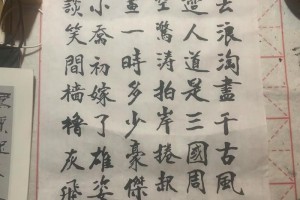 去浪淘盡千古風
邊人道是三國周
空驚濤拍岸捲起
畫一時多少豪傑
小喬初嫁了雄姿
談笑間檣櫓灰飛